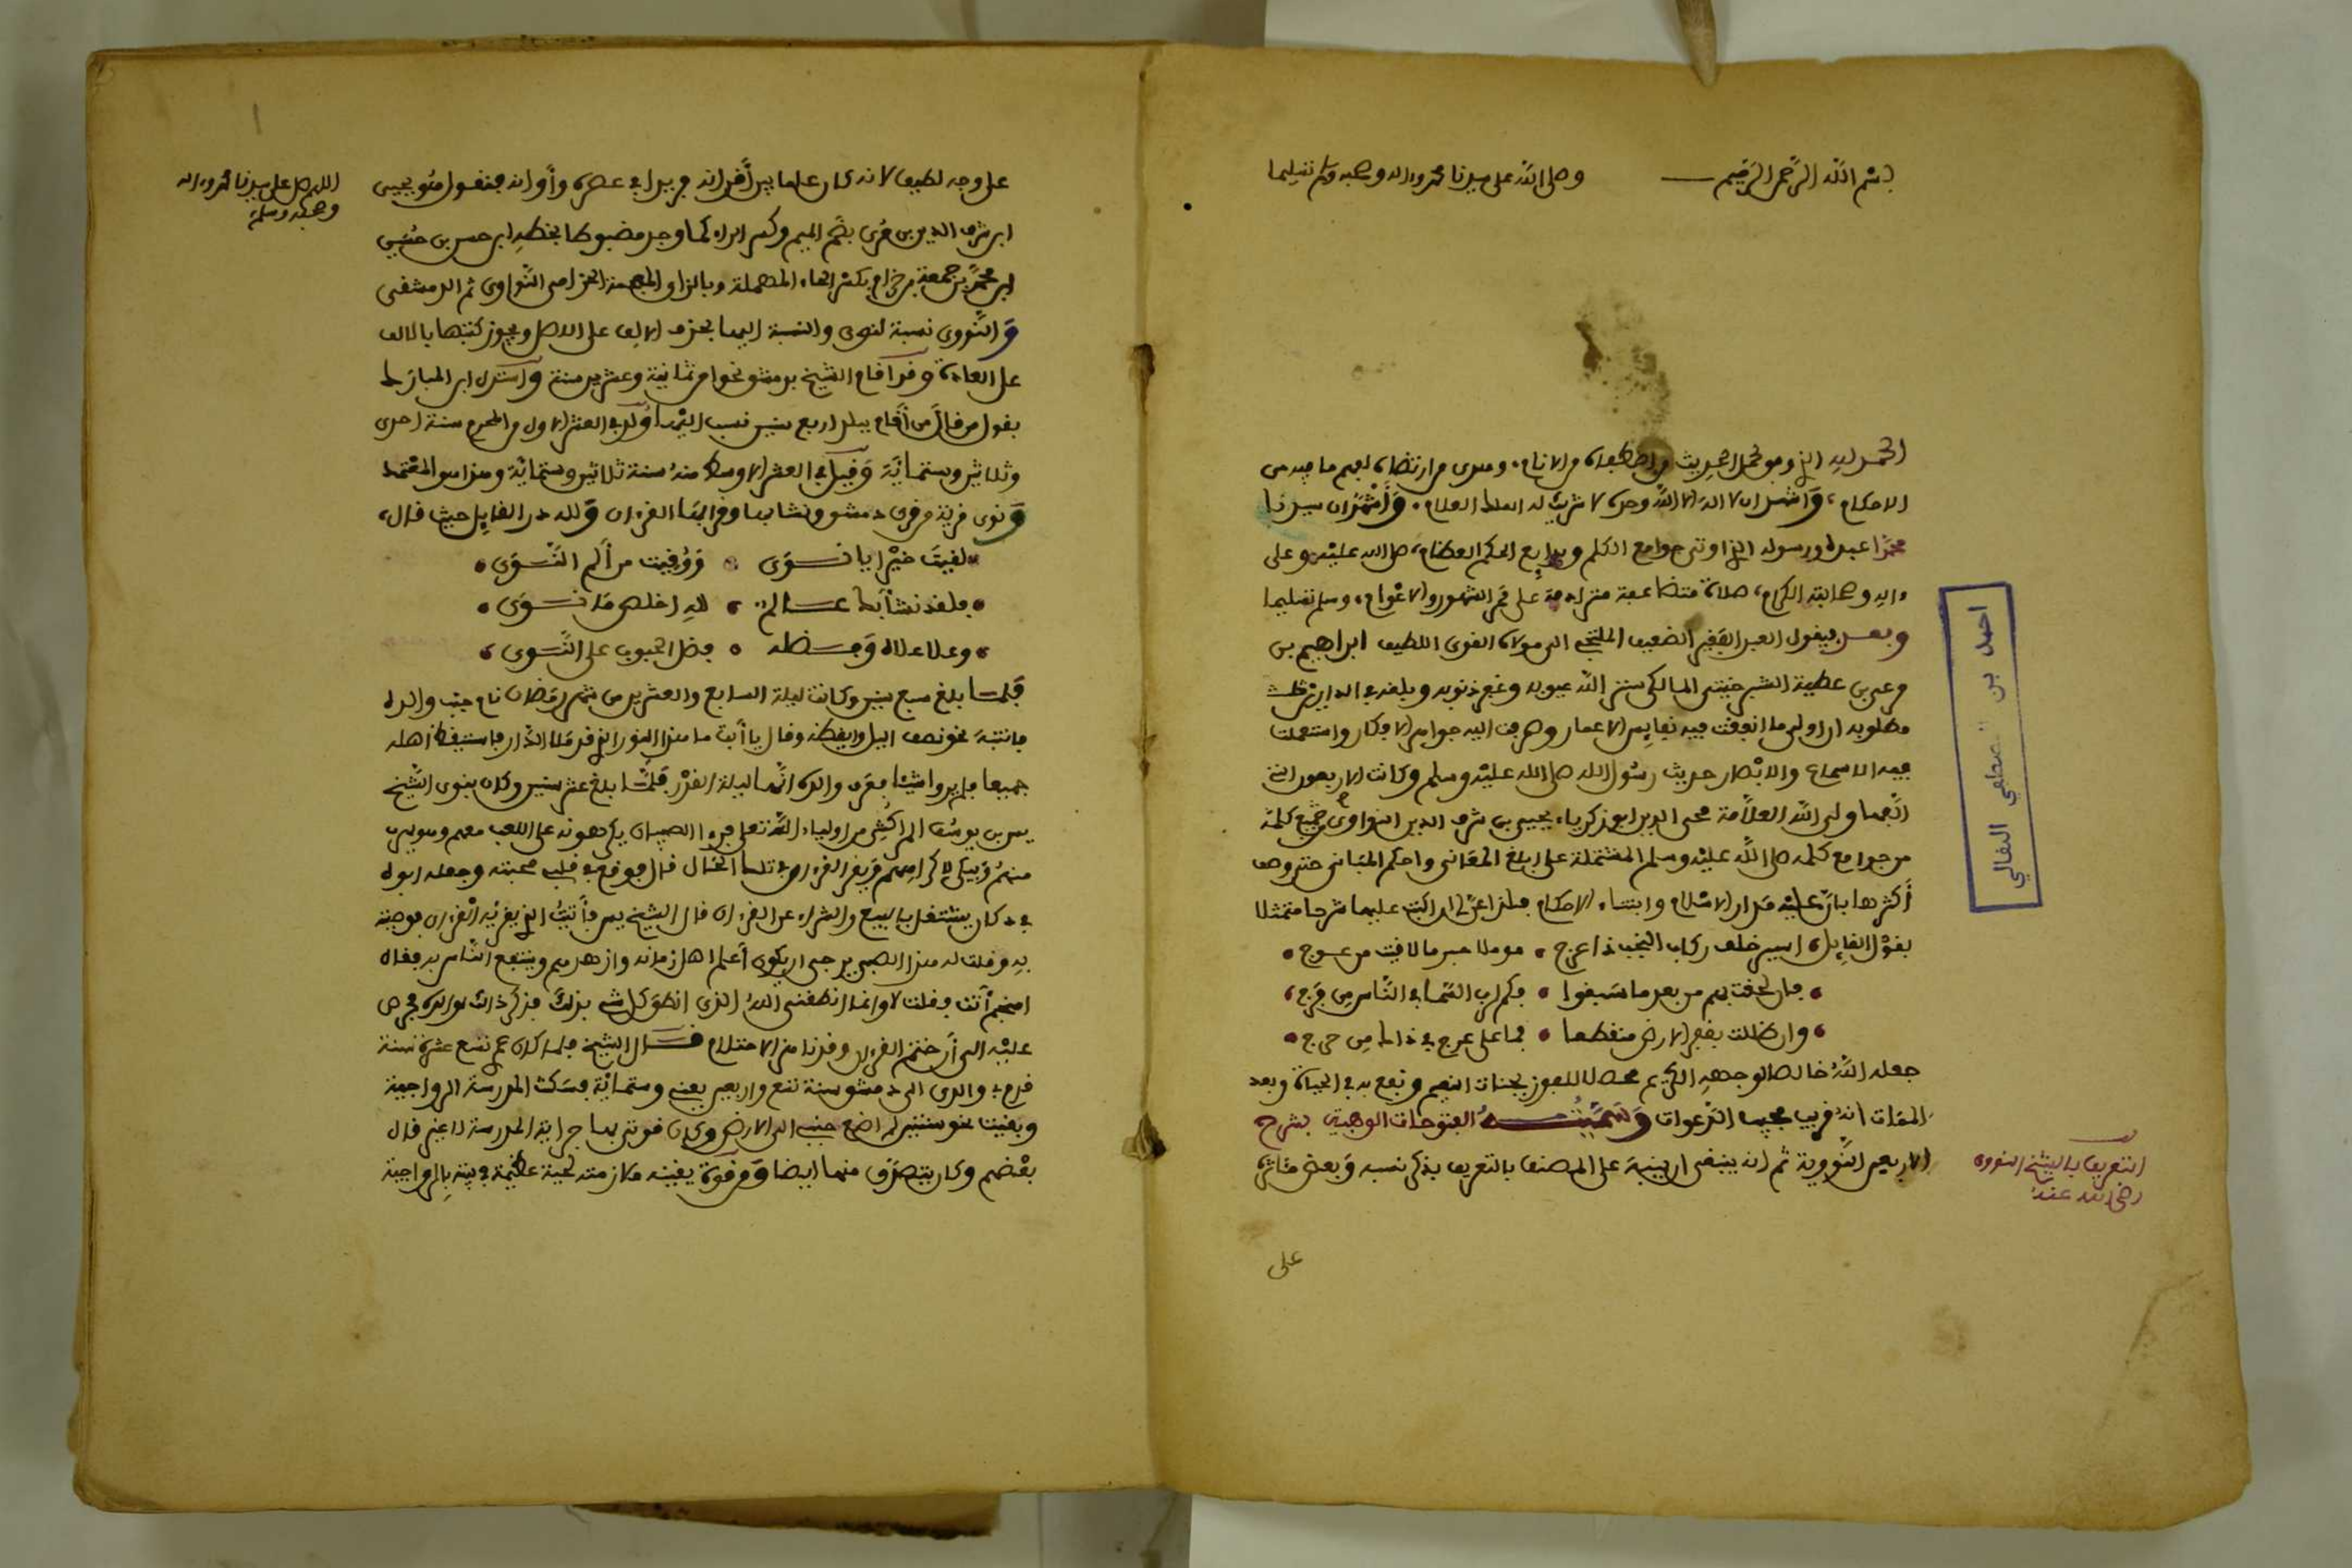 بسم الله الرحمن الرحيم وصلى الله على سيدنا محمد وءاله وصحبه وسلم تسليما
الحمد لله الذي وفق لحمل الحديث من اصطفاه من الانام، وهدى من ارتضاه لفهم ما فيه من
الاحكام، وأشهد ان لا اله الا الله وحده لا شريك له الملك العلام، وأشهد ان سيدنا
محمدا عبده ورسوله الذي اوتي جوامع الكلم وبدايع الحكم العظام، صلى الله عليه وعلى
ءاله وصحابته الكرام، صلاة متضاعفة مترادفة على ممر الشهور والاعوام، وسلم تسليما
وبعد فيقول العبد الفقير الضعيف الملتجي الى مولاه القوي اللطيف ابراهيم بن
مرعي بن عطية الشبرخيتي المالكي ستر الله عيوبه وغفر ذنوبه وبلغه في الدارين
مطلوبه ان اولى ما انفقت فيه نفايس الاعمار وصرفت اليه جواهر الافكار واستعملت
فيه الاسماع والابصار حديث رسول الله صلى الله عليه وسلم وكانت الاربعون التي
الفها ولي الله العلامة محيي الدين ابو زكرياء يحيى بن شرف الدين النواوي جميع كلمه
من جوامع كلمه صلى الله عليه وسلم المشتملة على ابلغ المعاني واحكم المباني حتى وصف
أكثرها بان عليه مدار الاسلام وابتناء الاحكام فلذا عن لي ان اكتب عليها شرحا متمثلا
بقول القايل، اسير خلف ركاب النجب ذا عرج، مؤملا جبر ما لاقيت من عوج
فان لحقت بهم من بعد ما سبقوا، فكم لرب السما في الناس من فرج
وان ظللت بقفر الارض منقطعا، فما على عرج في ذاك من حرج
جعله الله خالصا لوجهه الكريم محصلا للفوز بجنات النعيم ونفع به في الحياة وبعد
الممات انه قريب مجيب الدعوات وسميته الفتوحات الوهبية بشرح
الاربعين النووية ثم انه ينبغي ان ينبه على المصنف بالتعريف بذكر نسبه وبعض مئاثره
على
التعريف بالشيخ النووي
رضي الله عنه
احمد بن
على وجه لطيف لانه كان علما بين أقرانه فريدا في عصره وأوانه فنقول هو يحيى
ابن شرف الدين بن مري بضم الميم وكسر الراء كما وجد مضبوطا بخطه ابن حسن بن حسين
ابن محمد بن جمعة بن حزام بكسر الحاء المهملة وبالزاي المعجمة الحزامي النواوي ثم الدمشقي
والنووي نسبة لنوى والنسبة اليها بحذف الالف على الاصل ويجوز كتبها بالالف
على العادة وقد أقام الشيخ بدمشق نحوا من ثمانية وعشرين سنة واستدل ابن المبارك
بقول من قال من أقام ببلد اربع سنين نسب اليها ولد في العشر الاول من المحرم سنة احدى
وثلاثين وستمائة وقيل في العشر الاوسط منه سنة ثلاثين وستمائة وهذا هو المعتمد
ونوى قرية من قرى دمشق ونشا بها وقرا بها القرءان ولله در القايل حيث قال،
لقيت خيرا يا نوى، ووقيت من ألم النوى
فلقد نشا بك عالم، لله اخلص ما نوى
وعلا علاه وفضله، فضل الحبوب على النوى
فلما بلغ سبع سنين وكانت ليلة السابع والعشرين من شهر رمضان نام جنب والده
فانتبه نحو نصف اليل وايقظه وقال يا أبت ما هذا النور الذي قد ملا الدار فاستيقظ اهله
جميعا فلم يروا شيئا فعرف والده انها ليلة القدر فلما بلغ عشر سنين وكان بنوى الشيخ
يس بن يوسف المراكشي من اولياء الله تعلى فرءا الصبيان يكرهونه على اللعب معهم وهو يهرب
منهم ويبكي لاكراههم ويقرا القرءان في تلك الحال قال فوقع في قلبي محبته وجعله ابوه
في دكان يشتغل بالبيع والشراء عن القرءان قال الشيخ يس فأتيت الذي يقريه القرءان فوصيته
به وقلت له هذا الصبي يرجى ان يكون أعلم اهل زمانه وازهدهم وينتفع الناس به فقال
امنجم أنت فقلت لا وانما انطقني الله الذي انطق كل شيء بذلك فذكر ذلك لوالده فحرص
عليه الى أن ختم القرءان وقد ناهز الاحتلام قال الشيخ فلما كان عمري تسع عشرة سنة
قدم بي والدي الى دمشق سنة تسع واربعين يعني وستمائة فسكنت المدرسة الرواحية
وبقيت نحو سنتين لم اضع جنبي الى الارض وكان قوتي بها جراية المدرسة لا غير قال
بعضهم وكان يتصدق منها ايضا
اللهم صل على سيدنا محمد وءاله
وصحبه وسلم